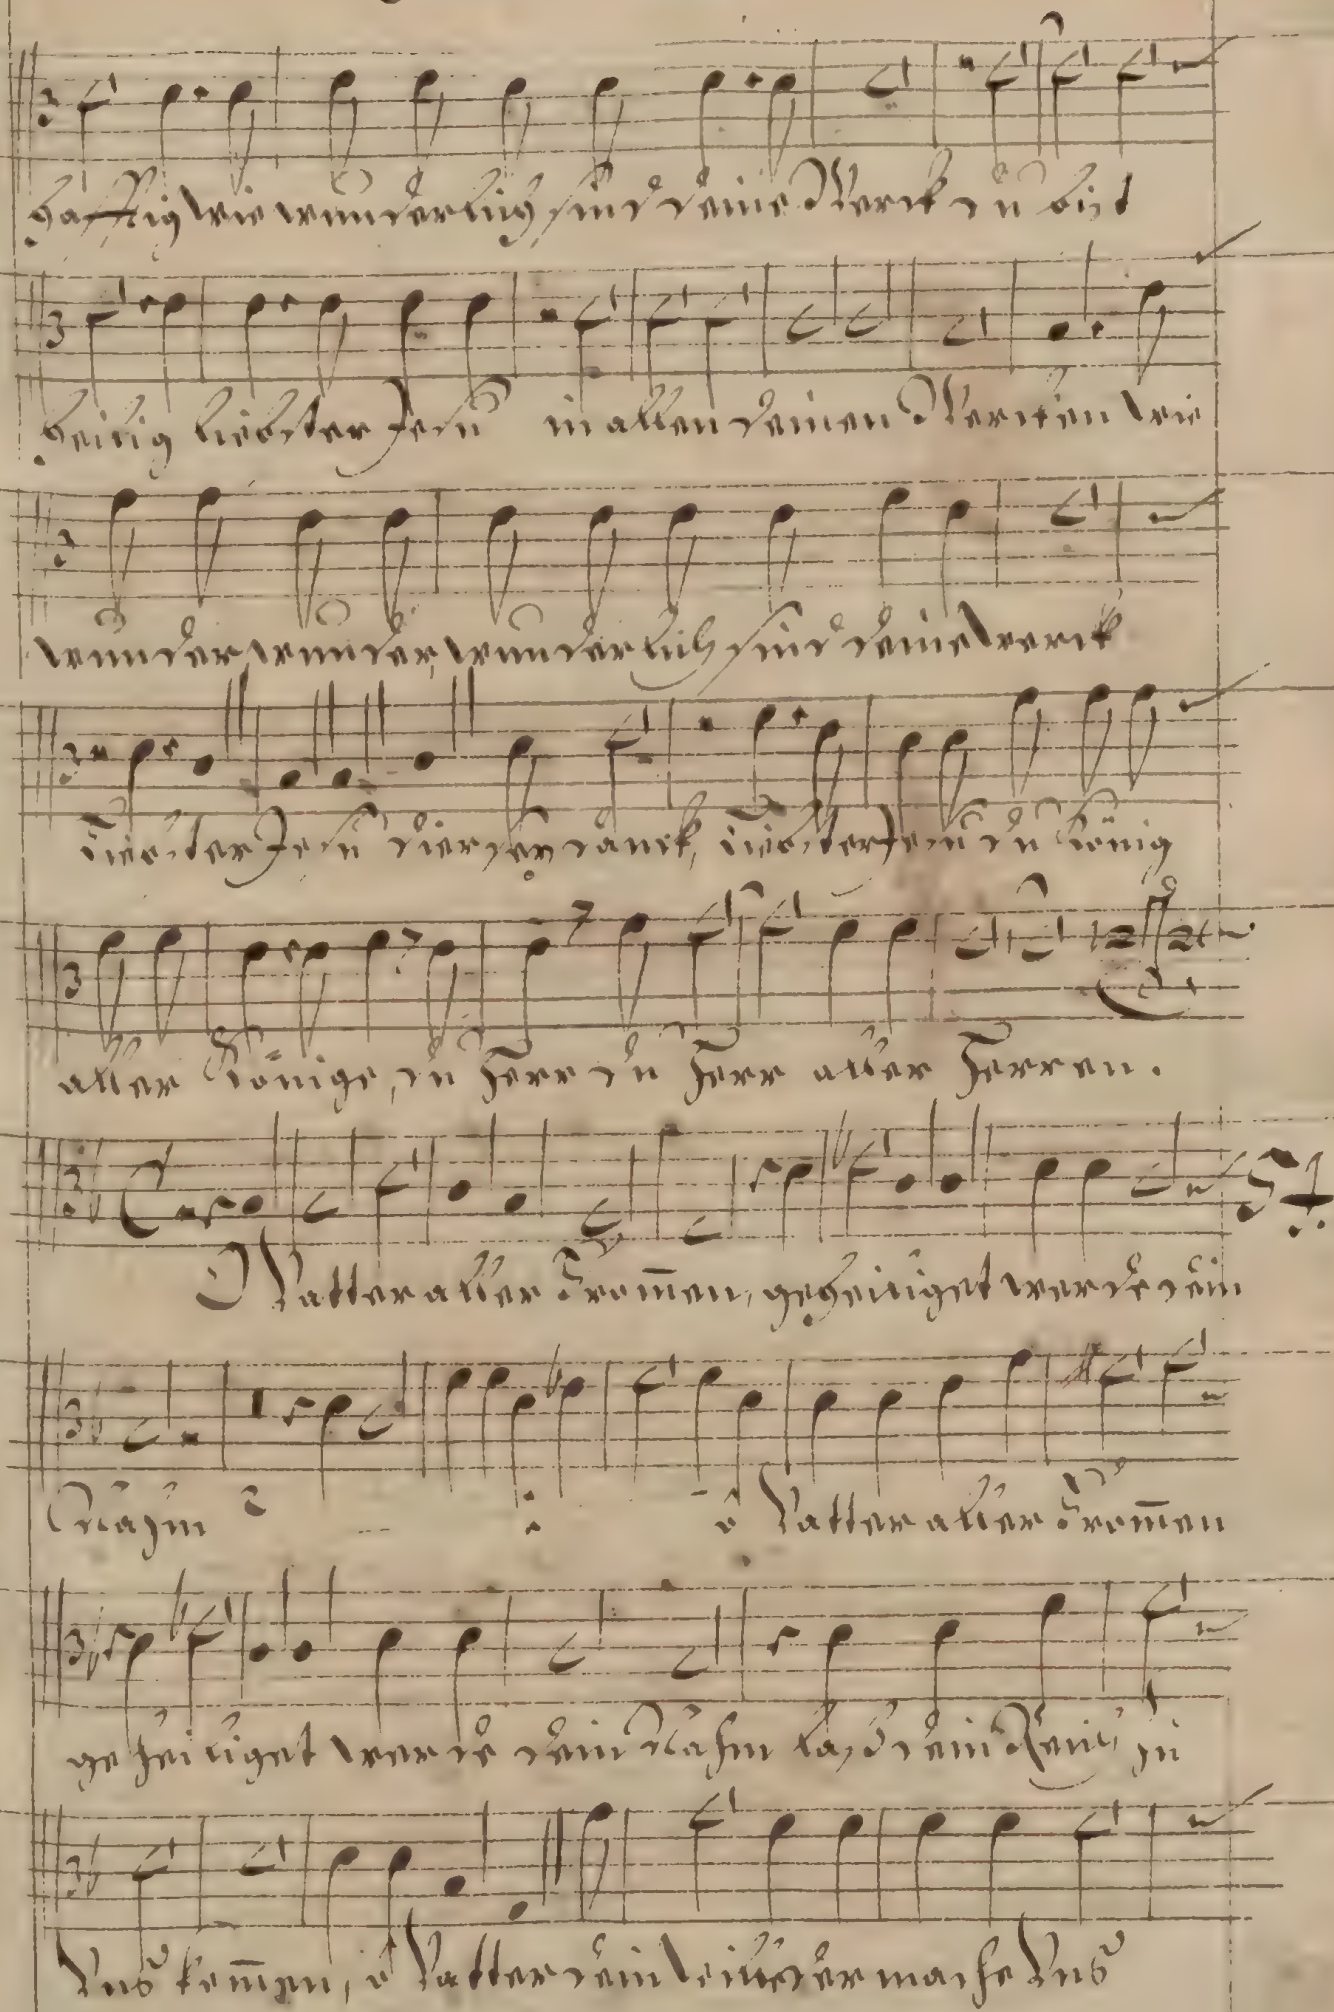 hafftig wie wunderlich sind deine Werck du bist
heilig liebster Jesu in allen deinen Wercken wie
wunder, wunder, wunderlich sind deine werck
Liebster Jesu dier seÿ danck, Liebster Jesu du König
aller Könige, du Herr du Herr aller Herren.
O Vatter aller From̄en, geheiliget werde dein
Nahm ō Vatter aller From̄en
geheiliget werde dein Nahm laß dein Reich zu
Vns kom̄en, ō Vatter dein wille der mache Vns